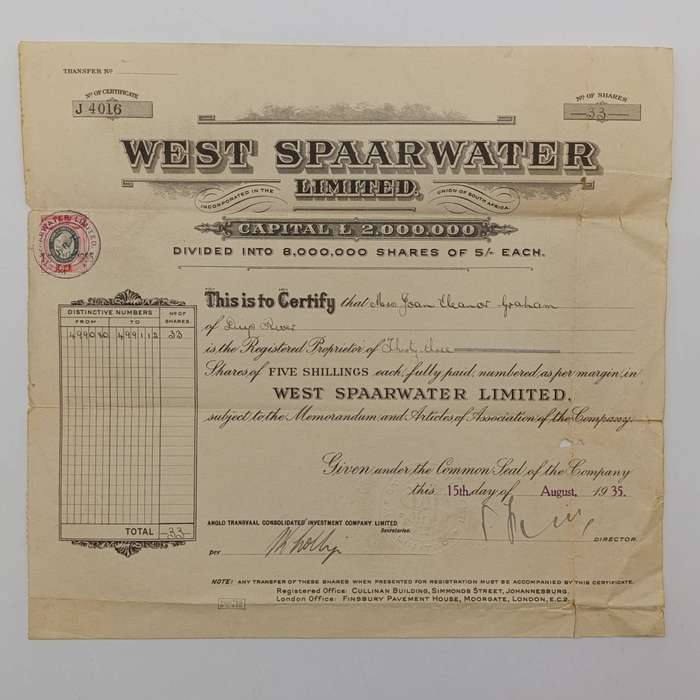 TRANSFER No
No OF CERTIFICATE
J 4016
No OF SHARES
33
WEST SPAARWATER
LIMITED.
INCORPORATED IN THE UNION OF SOUTH AFRICA.
CAPITAL £ 2,000,000
DIVIDED INTO 8,000,000 SHARES OF 5/- EACH.
WATER LIMITED.
DISTINCTIVE NUMBERS
FROM TO
No OF SHARES.
499080 499112 33
TOTAL 33
This is to Certify that Miss Joan Eleanor Graham
of Diep River
is the Registered Proprietor of Thirty three
Shares of FIVE SHILLINGS each, fully paid, numbered as per margin, in
WEST SPAARWATER LIMITED,
subject to the Memorandum and Articles of Association of the Company.
Given under the Common Seal of the Company
this 15th day of August, 1935.
ANGLO TRANSVAAL CONSOLIDATED INVESTMENT COMPANY LIMITED
Secretaries.
per
DIRECTOR
NOTE: ANY TRANSFER OF THESE SHARES WHEN PRESENTED FOR REGISTRATION MUST BE ACCOMPANIED BY THIS CERTIFICATE.
Registered Office: CULLINAN BUILDING, SIMMONDS STREET, JOHANNESBURG.
London Office: FINSBURY PAVEMENT HOUSE, MOORGATE, LONDON, E.C.2.